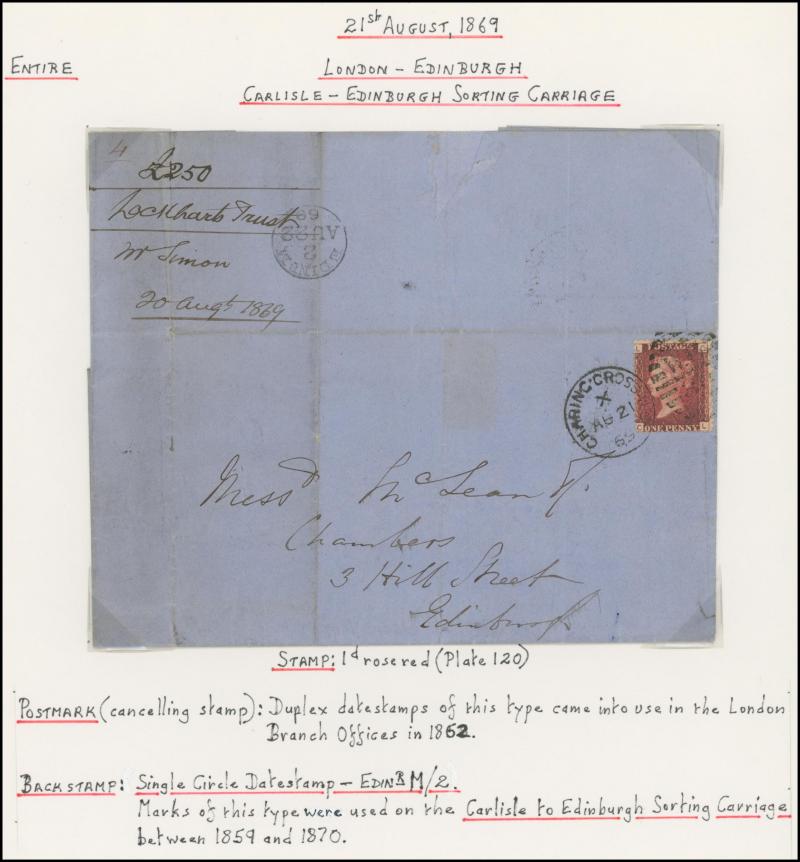 21st AUGUST, 1869
ENTIRE
LONDON – EDINBURGH
CARLISLE – EDINBURGH SORTING CARRIAGE
4
£250
Lockhart Trust
Mr Simon
20 Augt 1869
69
AU 22
2
EDINR M
CHARING·CROSS
X
AU 21
69
L C
POSTAGE
C L
ONE PENNY
Messrs McLean
Chambers
3 Hill Street
Edinburgh
STAMP: 1d rose red (Plate 120)
POSTMARK (cancelling stamp): Duplex datestamps of this type came into use in the London
Branch Offices in 1862.
BACKSTAMP: Single Circle Datestamp – EDINR M/2.
Marks of this type were used on the Carlisle to Edinburgh Sorting Carriage
between 1859 and 1870.